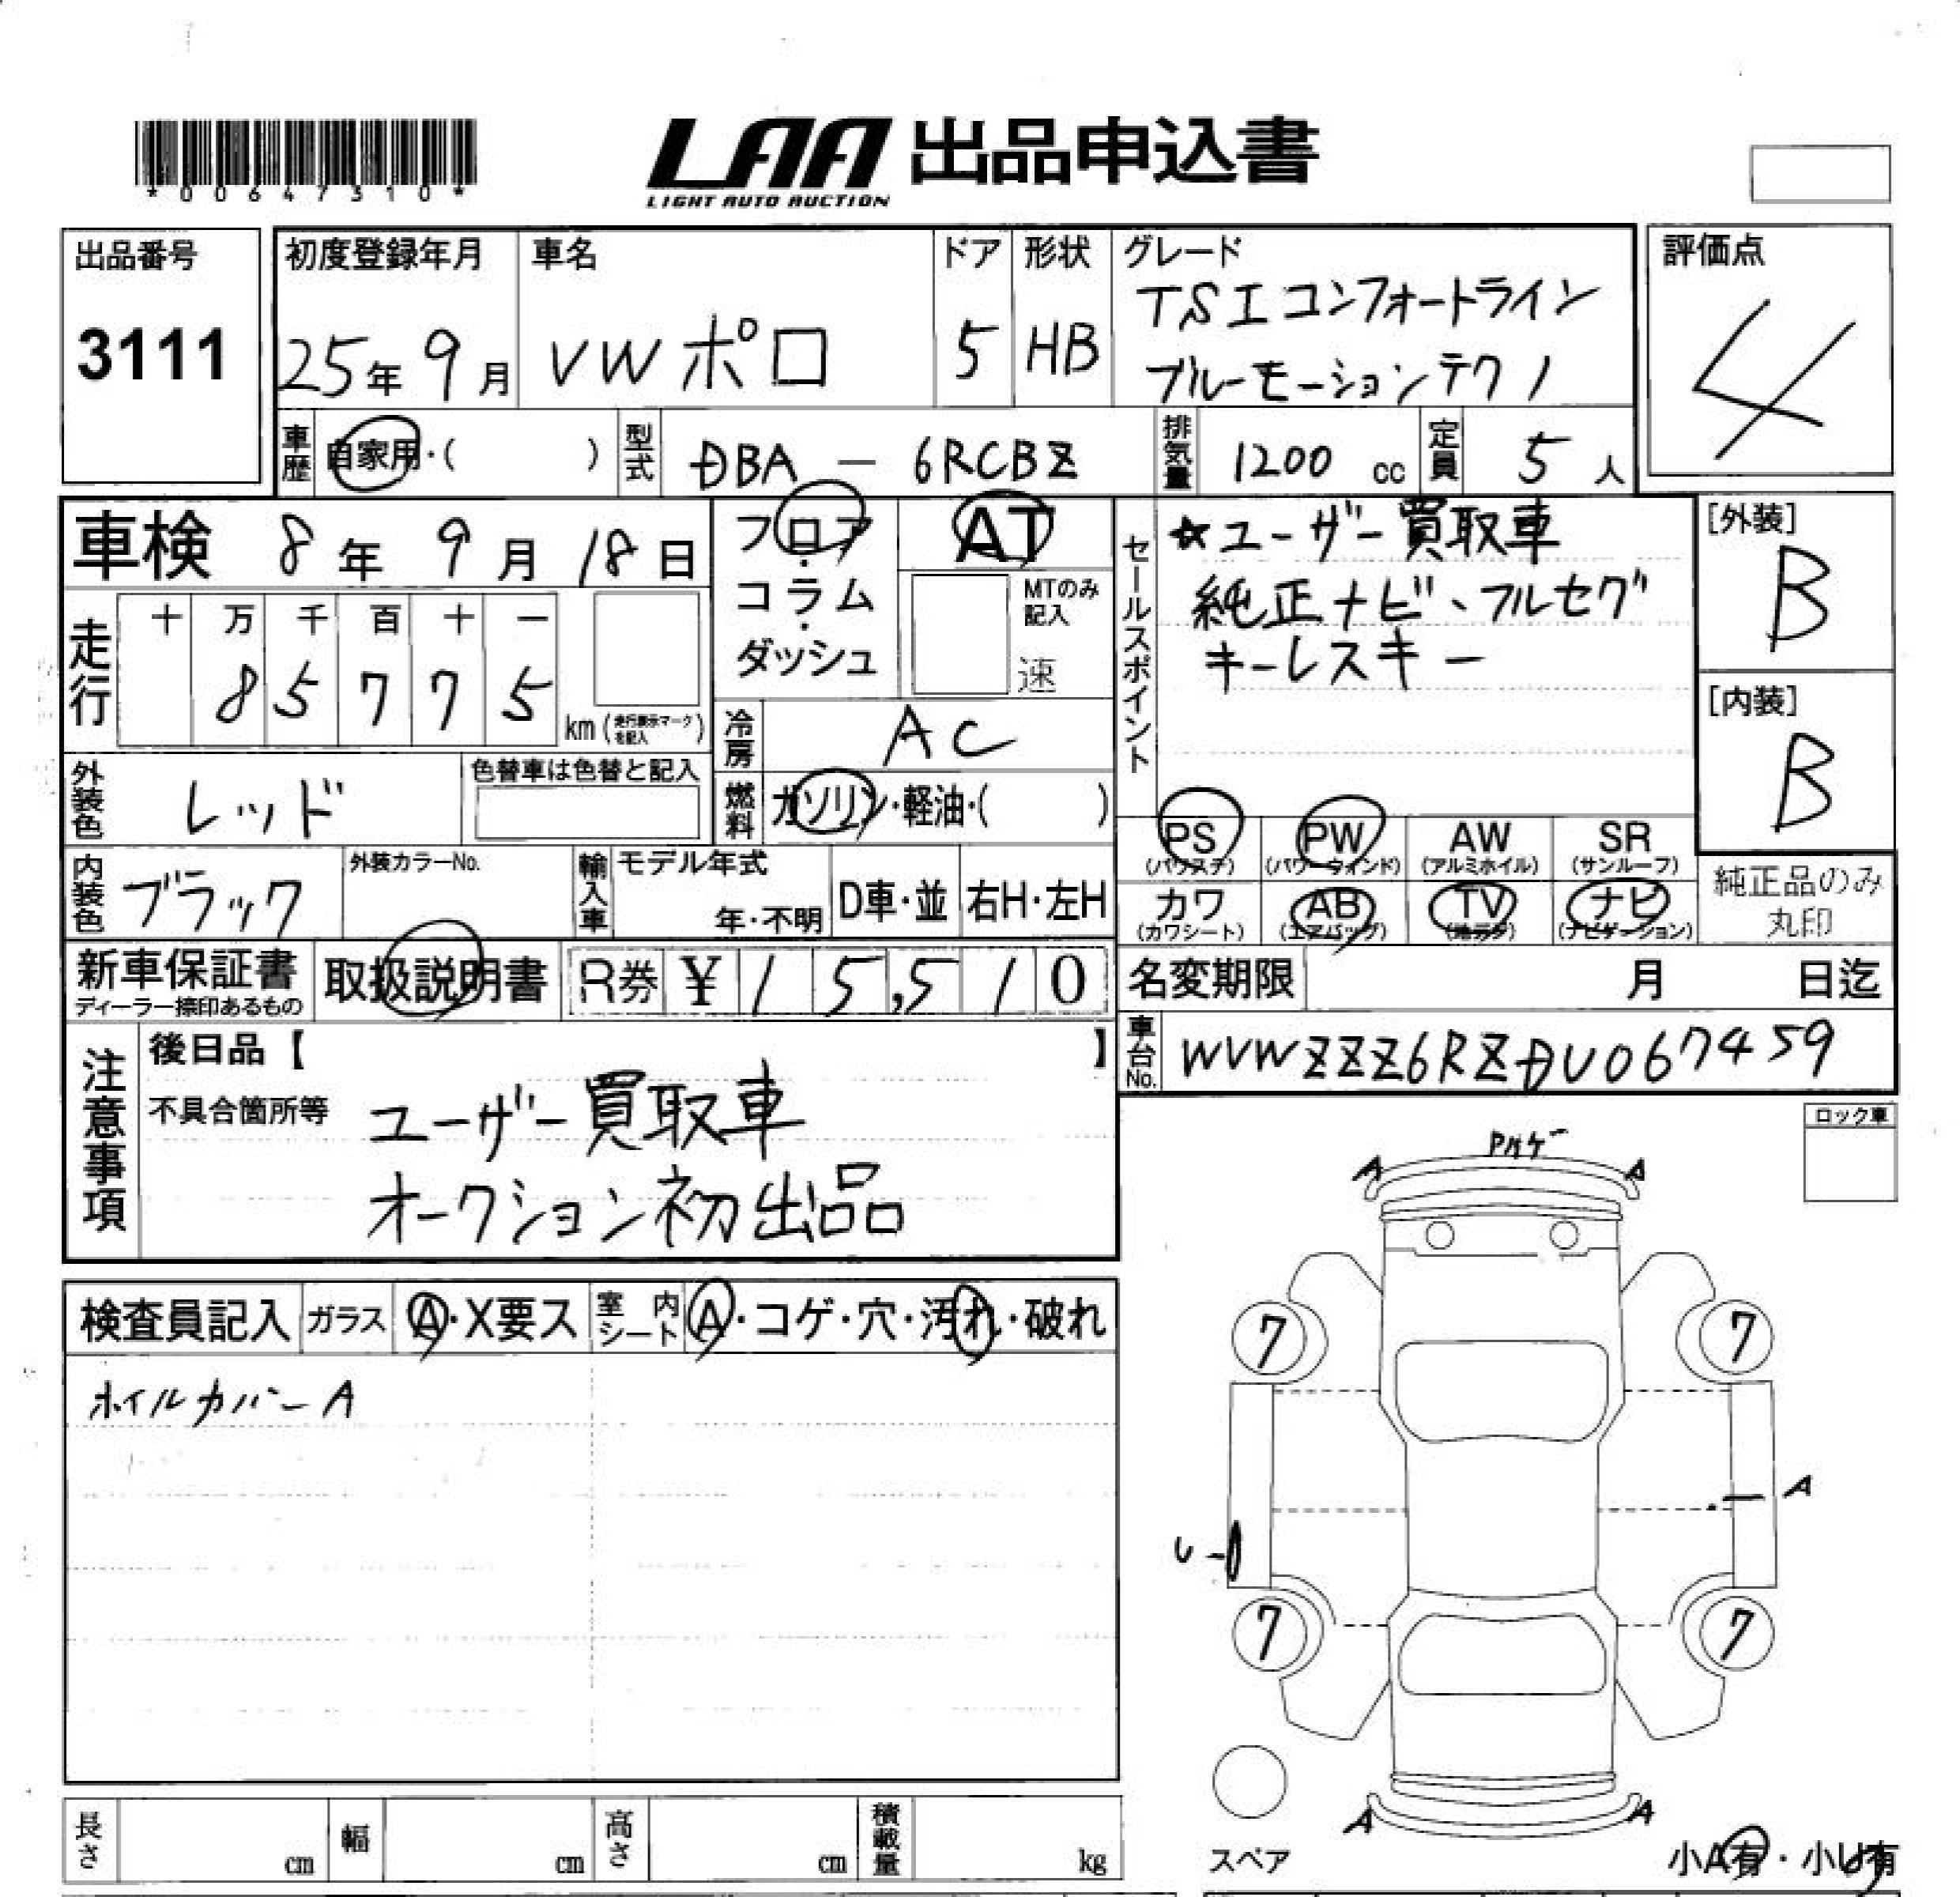 *00647310*
LAA 出品申込書
LIGHT AUTO AUCTION
出品番号
3111
初度登録年月
25年 9月
車名
VW ポロ
ドア
5
形状
HB
グレード
TSI コンフォートライン
ブルーモーションテクノ
評価点
4
車歴 自家用・( )
型式 DBA - 6RCBZ
排気量 1200 cc
定員 5 人
車検 8年 9月 18日
走行
十 万 千 百 十 一
8 5 7 7 5
km (走行表示マークを記入)
フロア
・
コラム
・
ダッシュ
AT
MTのみ
記入
速
冷房 AC
燃料 ガソリン・軽油・( )
セールスポイント
☆ユーザー買取車
純正ナビ、フルセグ
キーレスキー
[外装]
B
[内装]
B
外装色 レッド
色替車は色替と記入
内装色 ブラック
外装カラーNo.
輸入車
モデル年式
年・不明
D車・並
右H・左H
PS
(パワステ)
PW
(パワーウィンド)
AW
(アルミホイル)
SR
(サンルーフ)
カワ
(カワシート)
AB
(エアバッグ)
TV
(地デジ)
ナビ
(ナビゲーション)
純正品のみ
丸印
新車保証書
ディーラー捺印あるもの
取扱説明書
R券 ¥15,510
名変期限 月 日迄
車台No. WVWZZZ6RZDU067459
注意事項
後日品【 】
不具合箇所等
ユーザー買取車
オークション初出品
ロック車
検査員記入
ガラス A・X要ス
室内シート A・コゲ・穴・汚れ・破れ
ホイルカバーA
Pハゲ
A A
7 7
A
U
7 7
A A
スペア
小A有・小U有
長さ cm
幅 cm
高さ cm
積載量 kg